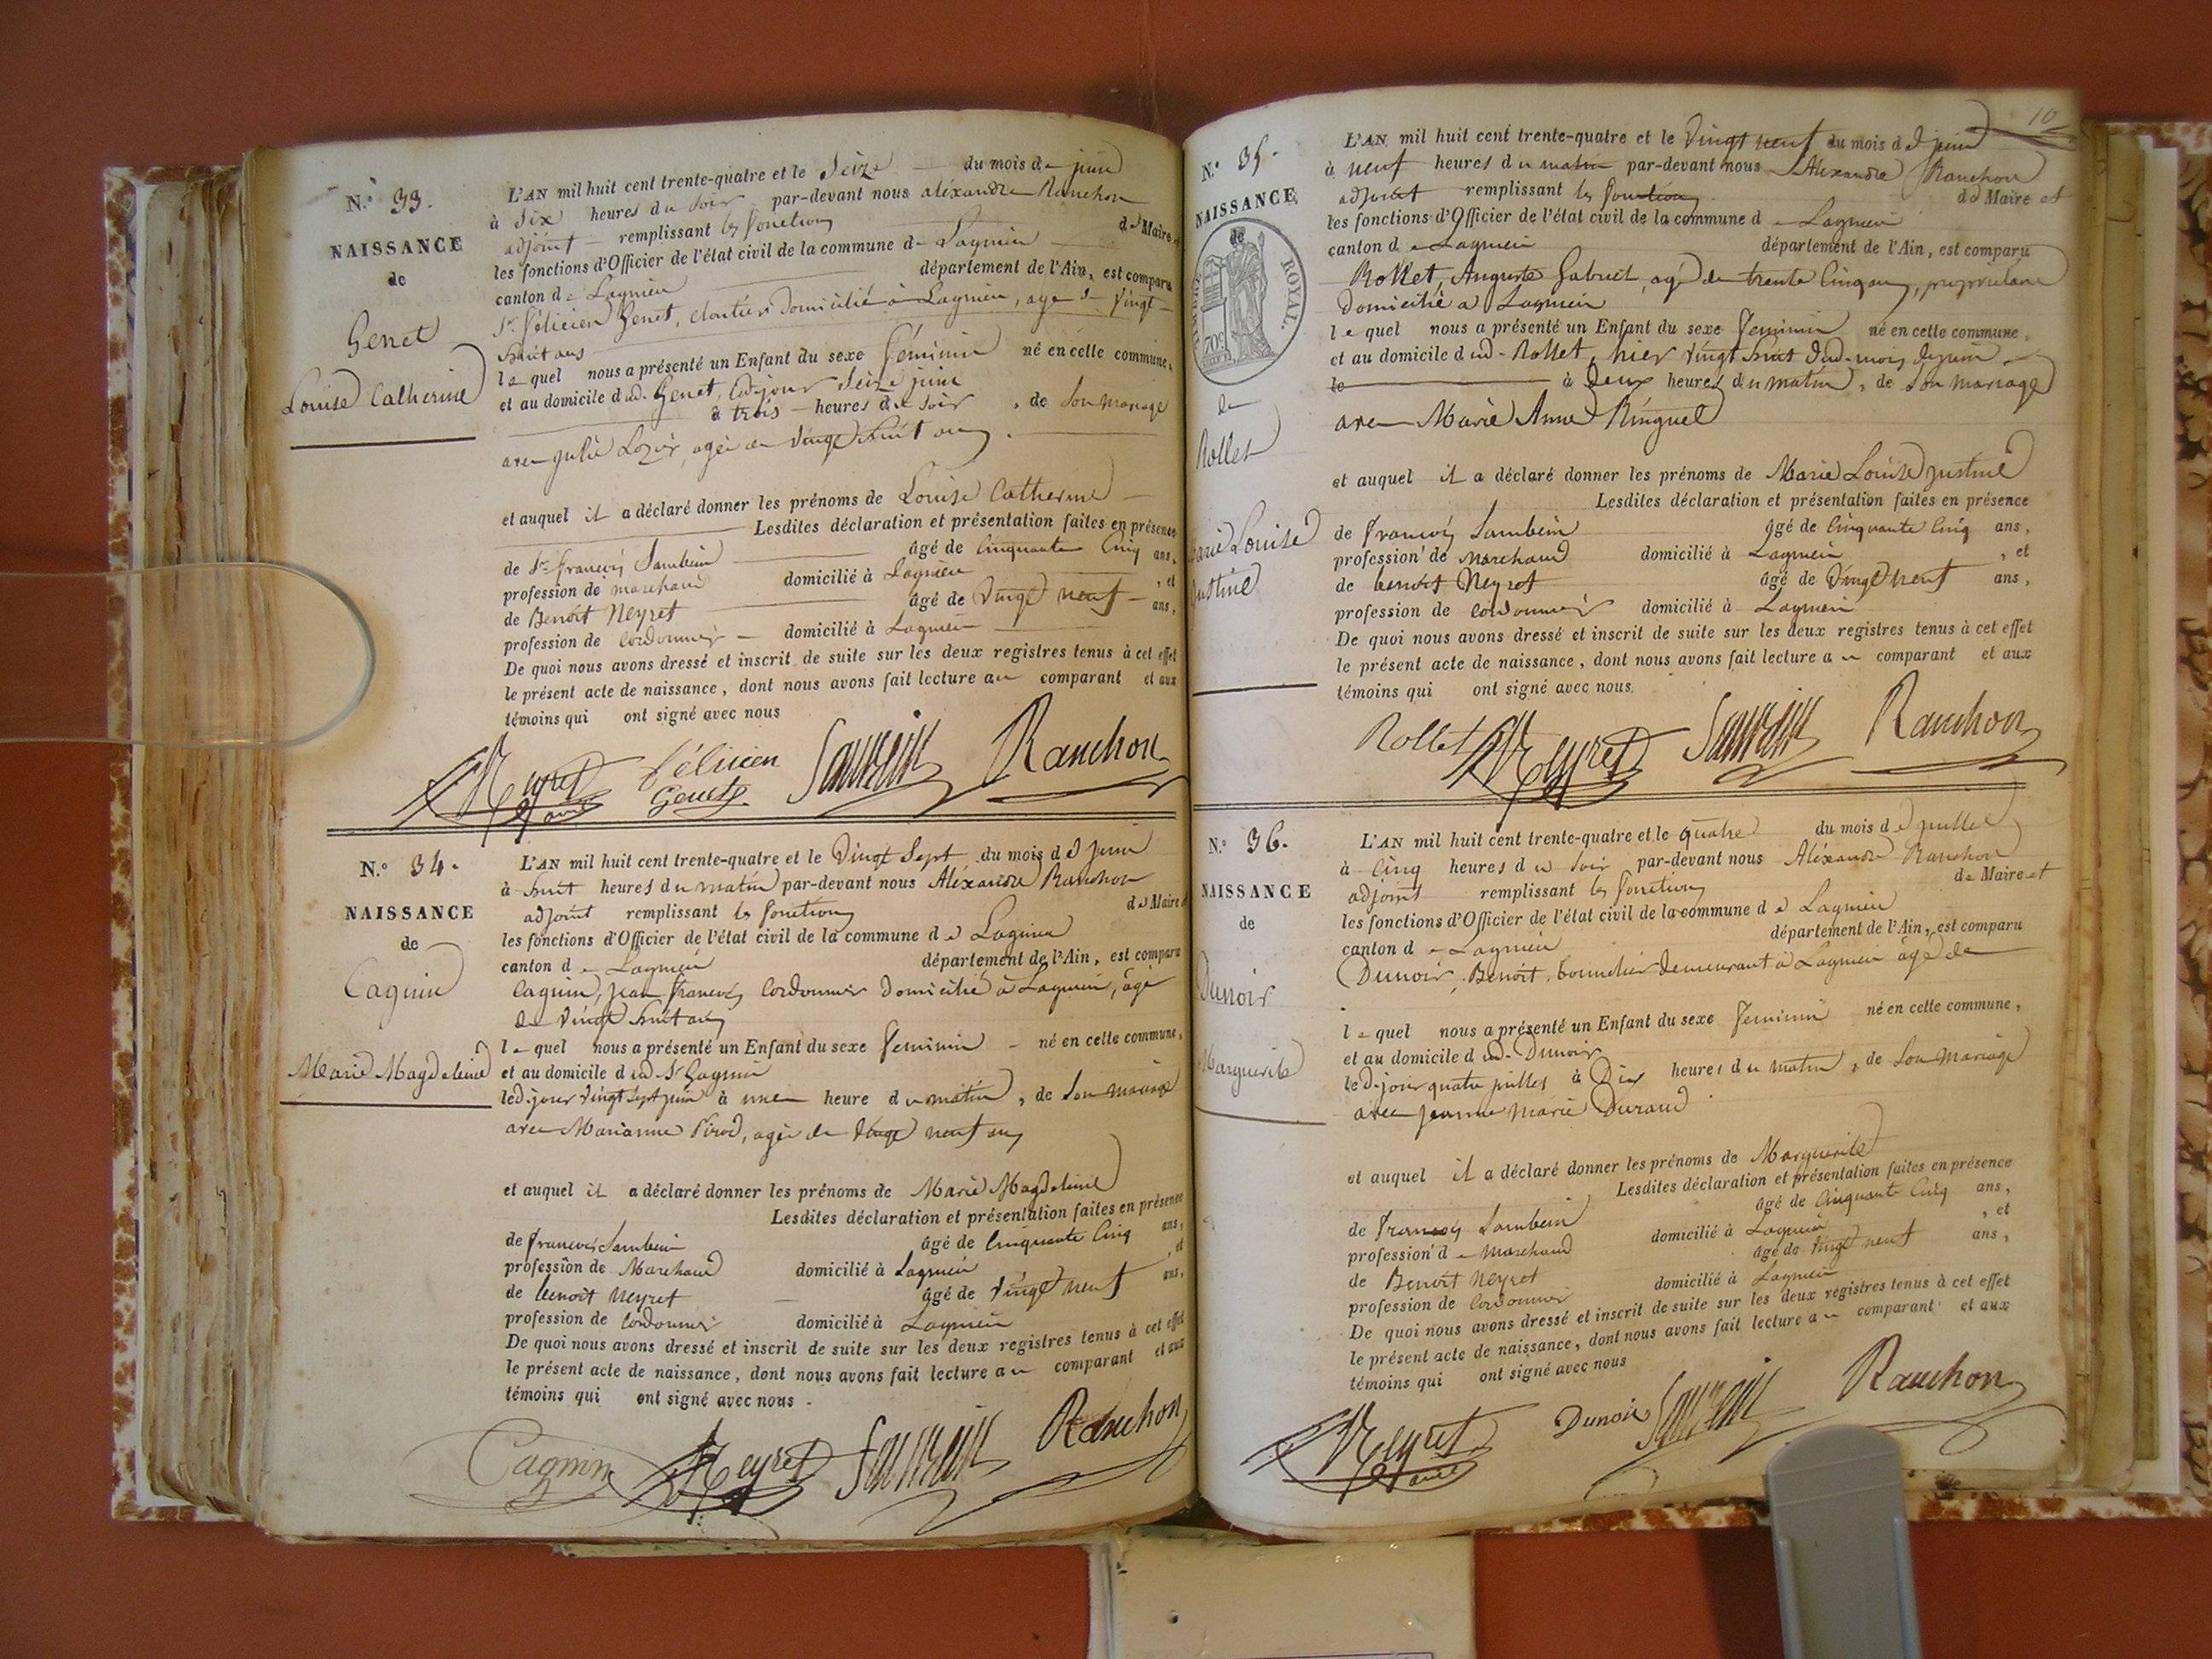 N.° 33.
NAISSANCE
de
Genet
Louise Catherine
L'AN mil huit cent trente-quatre et le Seize du mois de juin
à Six heures du soir par-devant nous aléxandre Ranchon
adjoint remplissant les fonctions de Maire et
les fonctions d'Officier de l'état civil de la commune de Lagnieu
canton de Lagnieu département de l'Ain, est comparu
Sr. Félicien Genet, cloutier domicilié à Lagnieu, agé de vingt
huit ans
lequel nous a présenté un Enfant du sexe féminin né en cette commune,
et au domicile dud. Genet, cedjour Seize juin
à trois heures du soir, de son mariage
avec julie, agée de vingt huit ans.
et auquel il a déclaré donner les prénoms de Louise Catherine
Lesdites déclaration et présentation faites en présence
de Sr. françois Sambein âgé de cinquante cinq ans,
profession de marchand domicilié à Lagnieu, et
de Benoit Neyret âgé de vingt neuf ans,
profession de cordonnier domicilié à Lagnieu
De quoi nous avons dressé et inscrit de suite sur les deux registres tenus à cet effet
le présent acte de naissance, dont nous avons fait lecture au comparant et aux
témoins qui ont signé avec nous
Neyret Félicien Genet Ranchon
N.° 34.
NAISSANCE
de
Cagnin
Marie Magdeleine
L'AN mil huit cent trente-quatre et le Vingt Sept du mois de juin
à huit heures du matin par-devant nous Aléxandre Ranchon
adjoint remplissant les fonctions de Maire et
les fonctions d'Officier de l'état civil de la commune de Lagnieu
canton de Lagnieu département de l'Ain, est comparu
Cagnin, jean françois cordonnier domicilié à Lagnieu, âgé
de vingt huit ans
lequel nous a présenté un Enfant du sexe feminin né en cette commune,
et au domicile dud. Sr Cagnin
led. jour vingt sept juin à une heure du matin, de son mariage
avec Marianne Pirod, agée de vingt neuf ans
et auquel il a déclaré donner les prénoms de Marie Magdeleine
Lesdites déclaration et présentation faites en présence
de françois Sambein âgé de cinquante cinq ans,
profession de Marchand domicilié à Lagnieu, et
de benoit Neyret âgé de vingt neuf ans,
profession de cordonnier domicilié à Lagnieu
De quoi nous avons dressé et inscrit de suite sur les deux registres tenus à cet effet
le présent acte de naissance, dont nous avons fait lecture au comparant et aux
témoins qui ont signé avec nous.
Cagnin Neyret Ranchon
10
N.° 35.
NAISSANCE
de
TIMBRE ROYAL.
70c
de
Rollet
Marie Louise
justine
L'AN mil huit cent trente-quatre et le vingt neuf du mois de juin
à neuf heures du matin par-devant nous Alexandre Ranchon
adjoint remplissant les fonctions de Maire et
les fonctions d'Officier de l'état civil de la commune de Lagnieu
canton de Lagnieu département de l'Ain, est comparu
Rollet, Auguste Gabriel, agé de trente cinq ans, propriétaire
domicilié a Lagnieu
lequel nous a présenté un Enfant du sexe feminin né en cette commune,
et au domicile dud. Rollet, hier vingt huit dud. mois de juin
le à deux heures du matin, de son mariage
avec Marie Anne Ringuet
et auquel il a déclaré donner les prénoms de Marie Louise justine
Lesdites déclaration et présentation faites en présence
de françois Sambein âgé de cinquante cinq ans,
profession de marchand domicilié à Lagnieu, et
de benoit Neyret âgé de vingt neuf ans,
profession de cordonnier domicilié à Lagnieu
De quoi nous avons dressé et inscrit de suite sur les deux registres tenus à cet effet
le présent acte de naissance, dont nous avons fait lecture au comparant et aux
témoins qui ont signé avec nous.
Rollet Neyret Ranchon
N.° 36.
NAISSANCE
de
Dunoir
Marguerite
L'AN mil huit cent trente-quatre et le quatre du mois de juillet
à cinq heures du soir par-devant nous Aléxandre Ranchon
adjoint remplissant les fonctions de Maire et
les fonctions d'Officier de l'état civil de la commune de Lagnieu
canton de Lagnieu département de l'Ain, est comparu
Dunoir, Benoit, demeurant à Lagnieu âgé de
lequel nous a présenté un Enfant du sexe feminin né en cette commune,
et au domicile dud. Dunoir
led. jour quatre juillet à Dix heures du matin, de son mariage
avec jeanne marie Durand.
et auquel il a déclaré donner les prénoms de Marguerite
Lesdites déclaration et présentation faites en présence
de françois Sambein âgé de cinquante cinq ans,
profession de marchand domicilié à Lagnieu, et
de Benoit Neyret âgé de vingt neuf ans,
profession de cordonnier domicilié à Lagnieu
De quoi nous avons dressé et inscrit de suite sur les deux registres tenus à cet effet
le présent acte de naissance, dont nous avons fait lecture au comparant et aux
témoins qui ont signé avec nous
Neyret Dunoir Ranchon